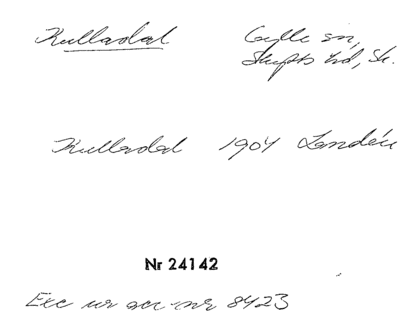 Kulladal Gylle sn,
Skytts hd, Sk.
Kulladal 1904 Landén
Nr 24142
Exc ur acc-nr 8423